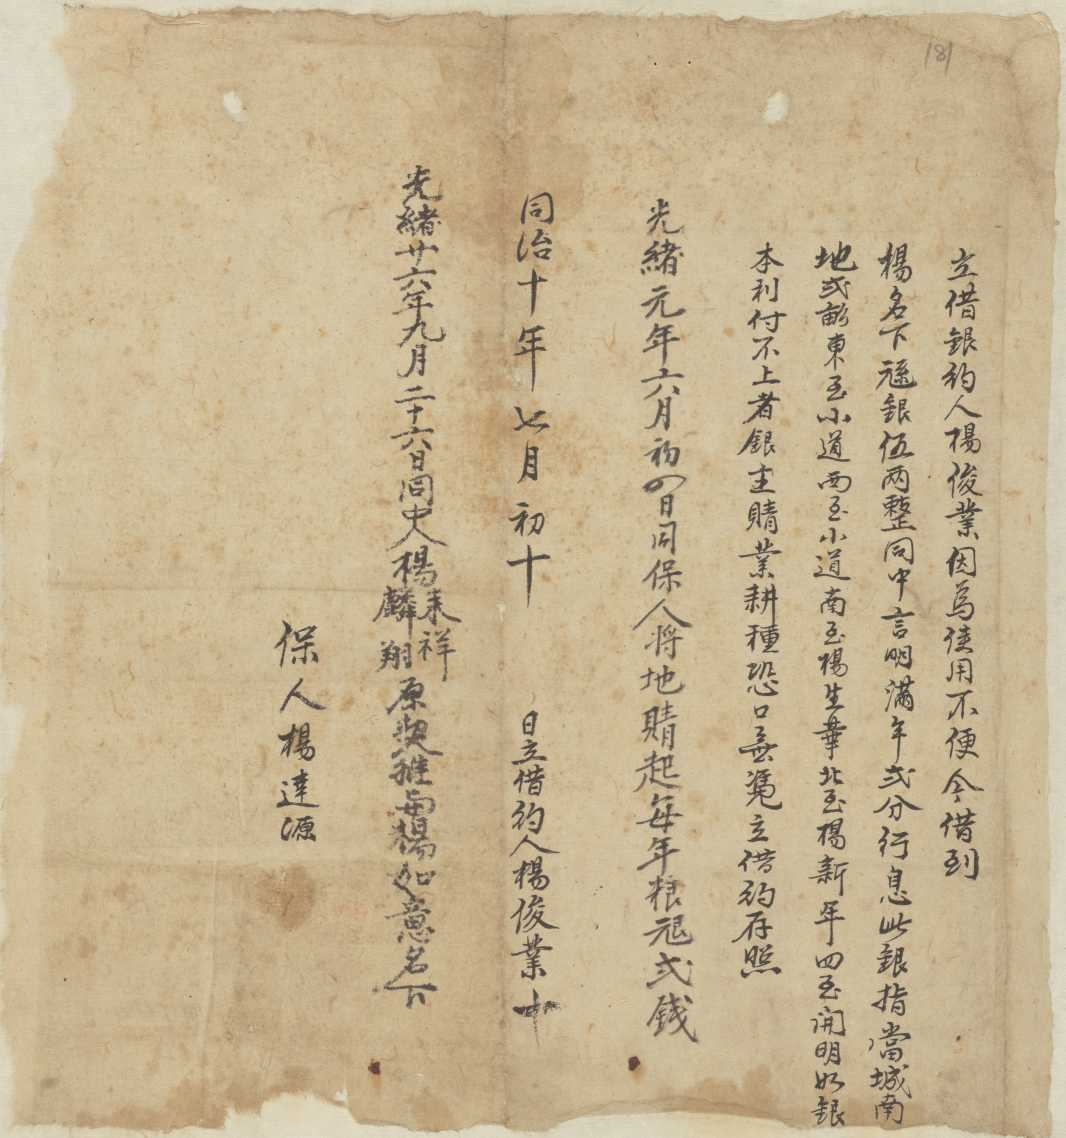 181
立借銀約人楊俊業因為使用不便今借到
楊名下 銀伍两整同中言明滿年弍分行息此銀指當城南
地弍畝東至小道西至小道南至楊生華北至楊新年四至開明如銀
本利付不上者銀主賭業耕種恐口無凴立借約存照
光緒元年六月初四日同保人将地賭起每年粮 弍錢
同治十年七月初十日立借約人楊俊業十
光緒廿六年九月二十六日同中人楊 祥麟翔原契推與楊如意名下
保人楊達源